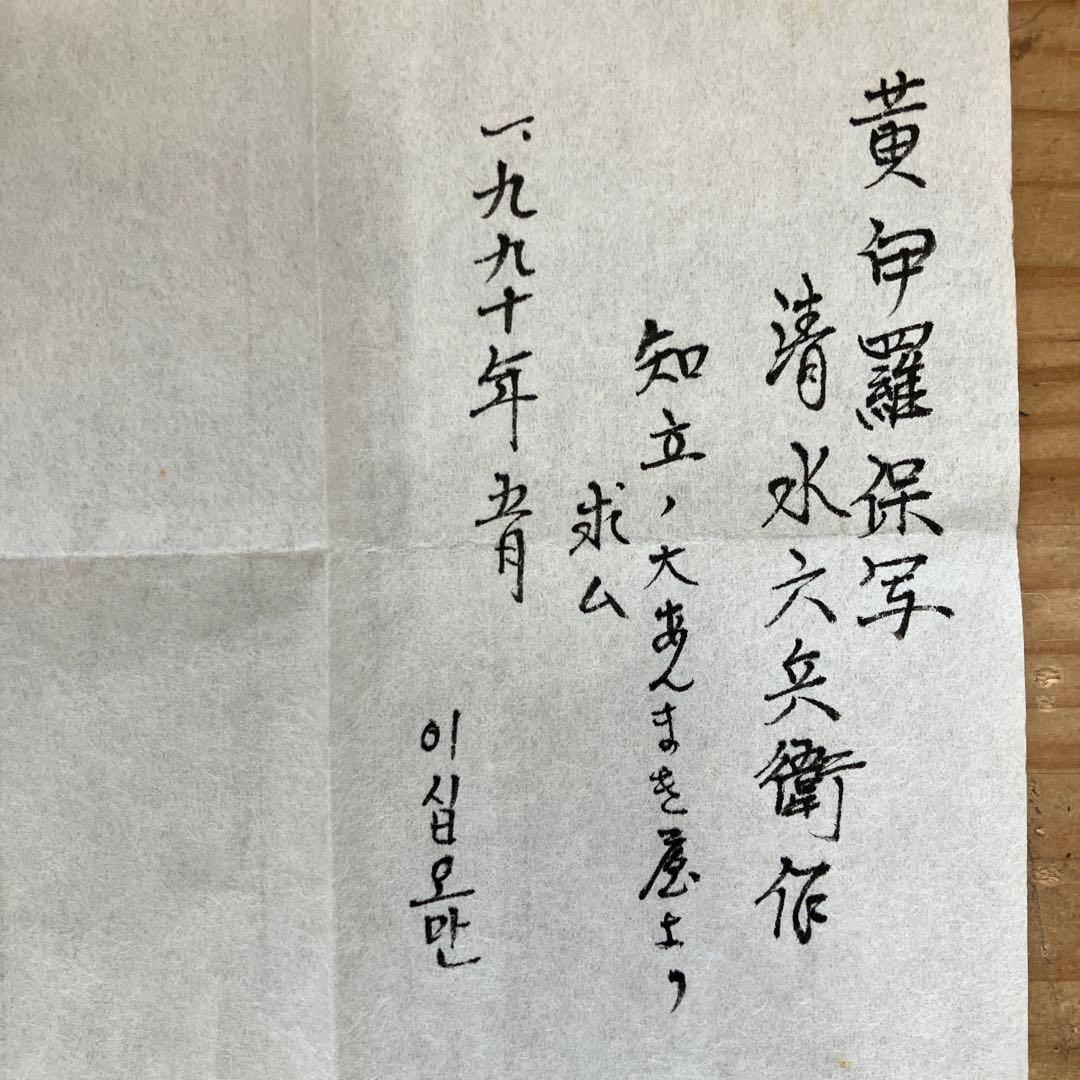 黄伊羅保写
清水六兵衛作
知立ノ大あんまき屋より
求ム
一、九九十年五月
이십오만